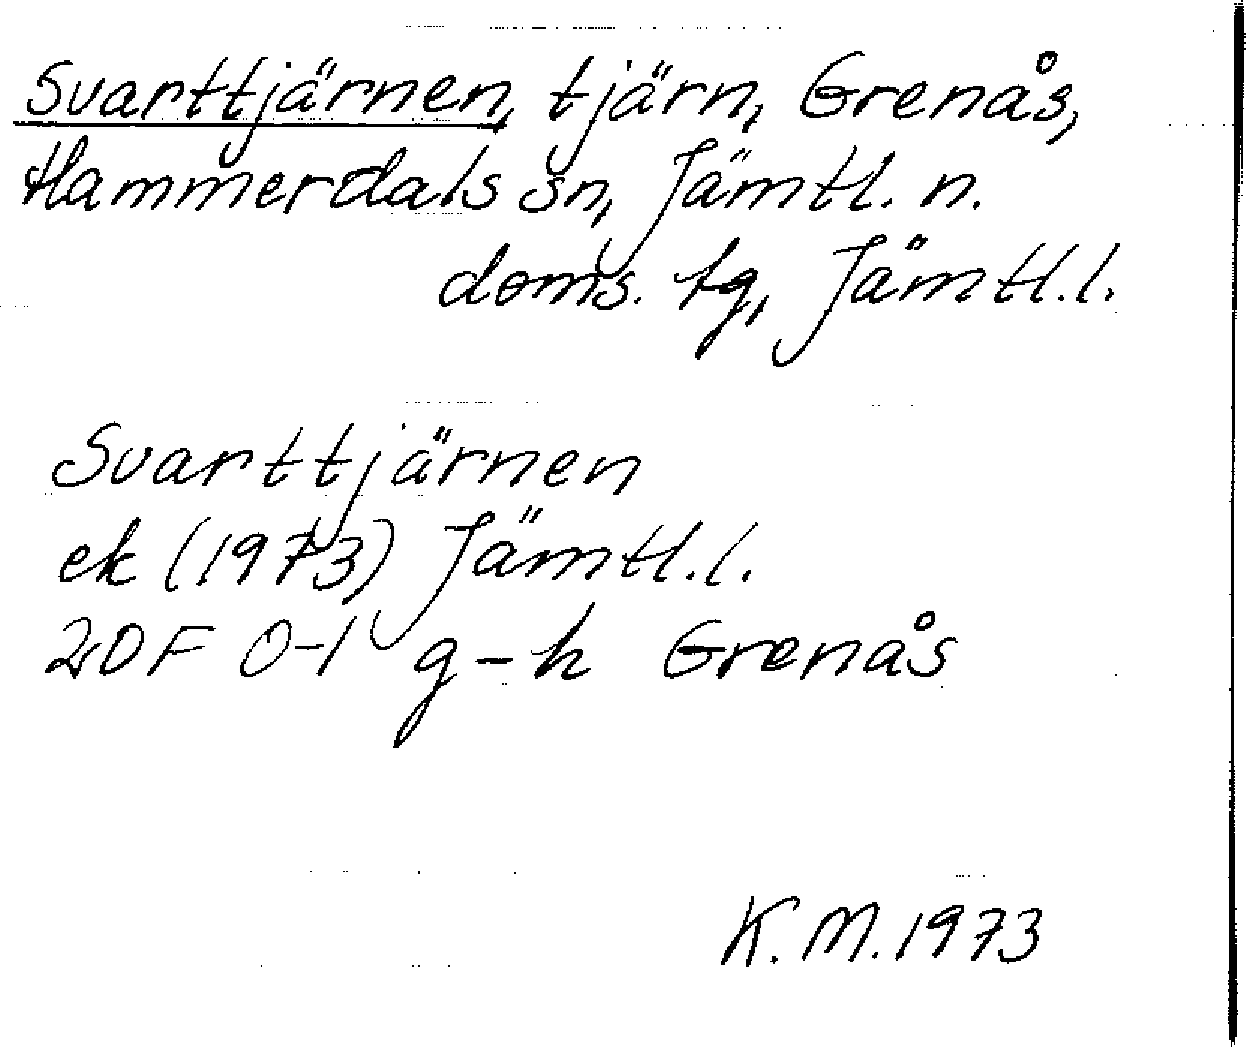 Svarttjärnen, tjärn, Grenås,
Hammerdals sn, Jämtl. n.
doms. tg, Jämtl.l.
Svarttjärnen
ek (1973) Jämtl.l.
20F 0-1 g-h Grenås
K.M.1973